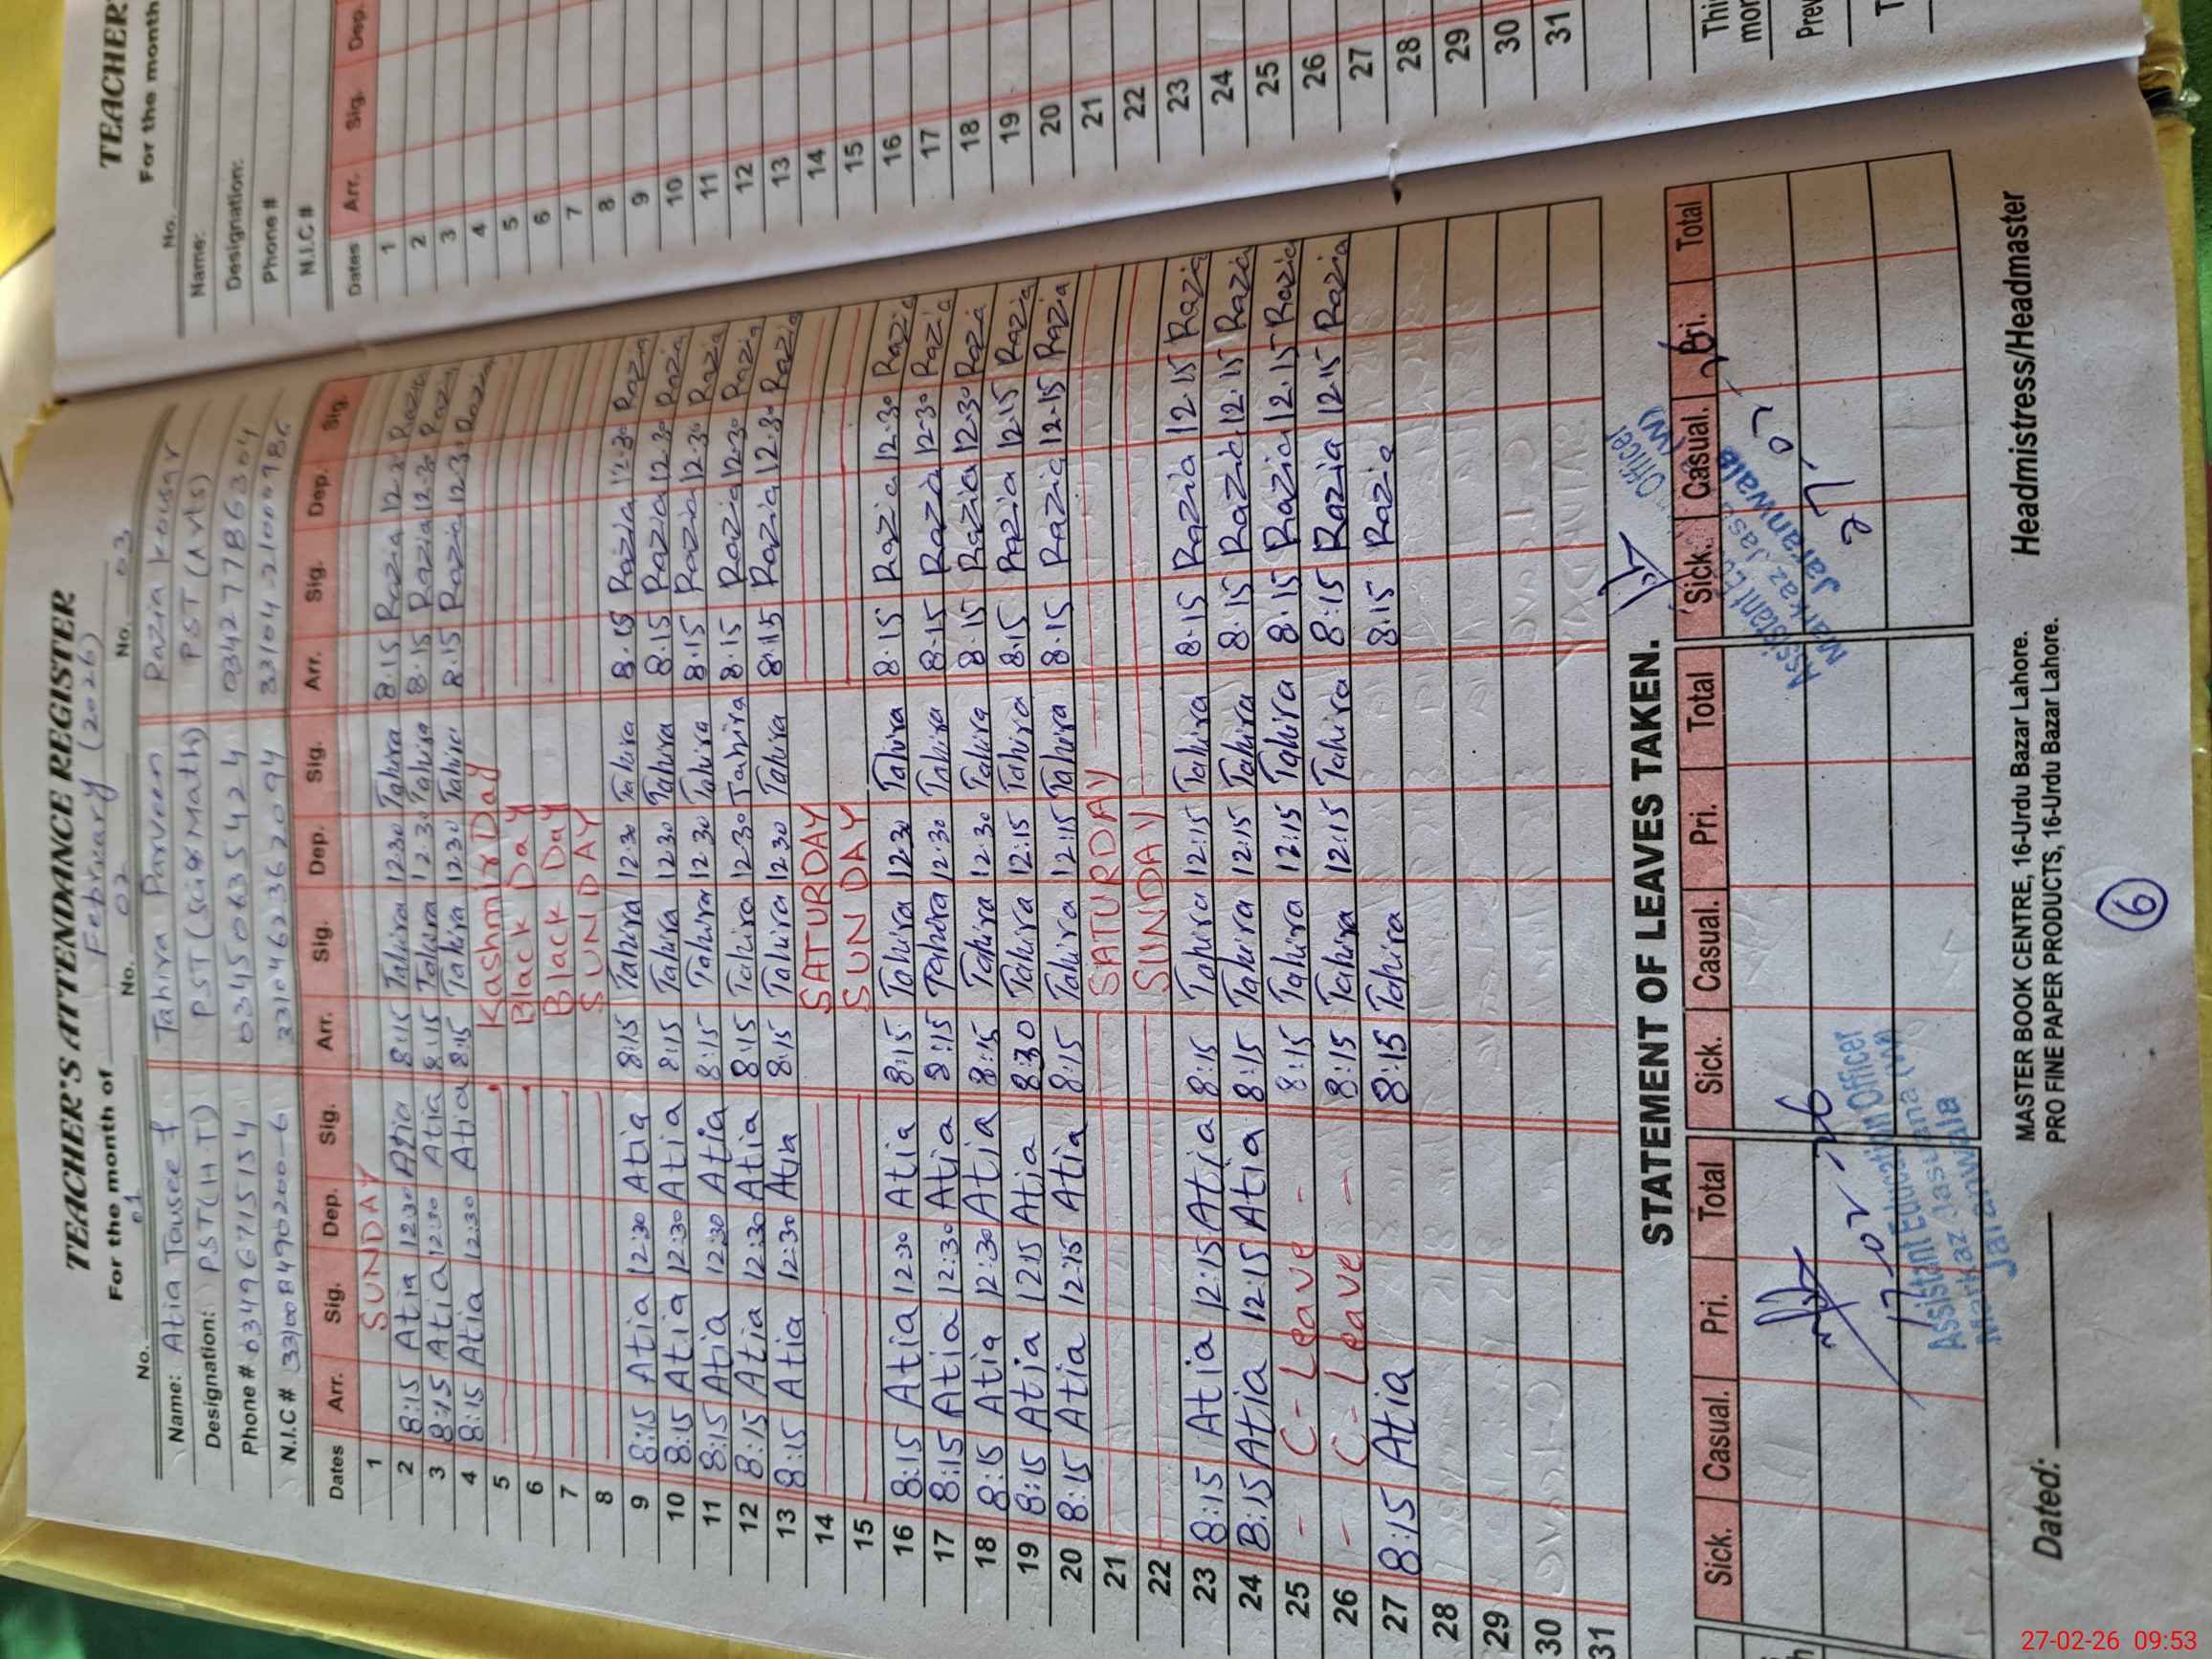 TEACHER'S ATTENDANCE REGISTER
For the month of February (2026)
No. 01 No. 02 No. 03
Name: Atia Tousee f Tahira Parveen Razia Kousar
Designation: PST (H.T) PST (Sci & Math) PST (Avls)
Phone # 03496715154 03450635424 03427786304
N.I.C # 3310462362094
Dates Arr. Sig. Dep. Sig. Arr. Sig. Dep. Sig. Arr. Sig. Dep. Sig.
1 SUNDAY
2 8:15 Atia 12:30 Atia 8:15 Tahira 12:30 Tahira 8:15 Razia 12:30 Razia
3 8:15 Atia 12:30 Atia 8:15 Tahira 12:30 Tahira 8:15 Razia 12:30 Razia
4 8:15 Atia 12:30 Atia 8:15 Tahira 12:30 Tahira 8:15 Razia 12:30 Razia
5 Kashmir Day
6 Black Day
7 Black Day
8 SUNDAY
9 8:15 Atia 12:30 Atia 8:15 Tahira 12:30 Tahira 8:15 Razia 12:30 Razia
10 8:15 Atia 12:30 Atia 8:15 Tahira 12:30 Tahira 8:15 Razia 12:30 Razia
11 8:15 Atia 12:30 Atia 8:15 Tahira 12:30 Tahira 8:15 Razia 12:30 Razia
12 8:15 Atia 12:30 Atia 8:15 Tahira 12:30 Tahira 8:15 Razia 12:30 Razia
13 8:15 Atia 12:30 Atia 8:15 Tahira 12:30 Tahira 8:15 Razia 12:30 Razia
14 SATURDAY
15 SUNDAY
16 8:15 Atia 12:30 Atia 8:15 Tahira 12:30 Tahira 8:15 Razia 12:30 Razia
17 8:15 Atia 12:30 Atia 8:15 Tahira 12:30 Tahira 8:15 Razia 12:30 Razia
18 8:15 Atia 12:30 Atia 8:15 Tahira 12:30 Tahira 8:15 Razia 12:30 Razia
19 8:15 Atia 12:15 Atia 8:30 Tahira 12:15 Tahira 8:15 Razia 12:15 Razia
20 8:15 Atia 12:15 Atia 8:15 Tahira 12:15 Tahira 8:15 Razia 12:15 Razia
21 SATURDAY
22 SUNDAY
23 8:15 Atia 12:15 Atia 8:15 Tahira 12:15 Tahira 8:15 Razia 12:15 Razia
24 8:15 Atia 12:15 Atia 8:15 Tahira 12:15 Tahira 8:15 Razia 12:15 Razia
25 - C - Leave - 8:15 Tahira 12:15 Tahira 8:15 Razia 12:15 Razia
26 - C - Leave - 8:15 Tahira 12:15 Tahira 8:15 Razia 12:15 Razia
27 8:15 Atia 8:15 Tahira 8:15 Razia
28
29
30
31
STATEMENT OF LEAVES TAKEN.
Sick. Casual. Pri. Total Sick. Casual. Pri. Total Sick. Casual. Pri. Total
17-02-26
Assistant Education Officer
Markaz Jaranwala
Jaranwala
Dated: Headmistress/Headmaster
MASTER BOOK CENTRE, 16-Urdu Bazar Lahore.
PRO FINE PAPER PRODUCTS, 16-Urdu Bazar Lahore.
6
TEACHER
For the month
No.
Name:
Designation:
Phone #
N.I.C #
Dates Arr. Sig. Dep.
1
2
3
4
5
6
7
8
9
10
11
12
13
14
15
16
17
18
19
20
21
22
23
24
25
26
27
28
29
30
31
27-02-26 09:53